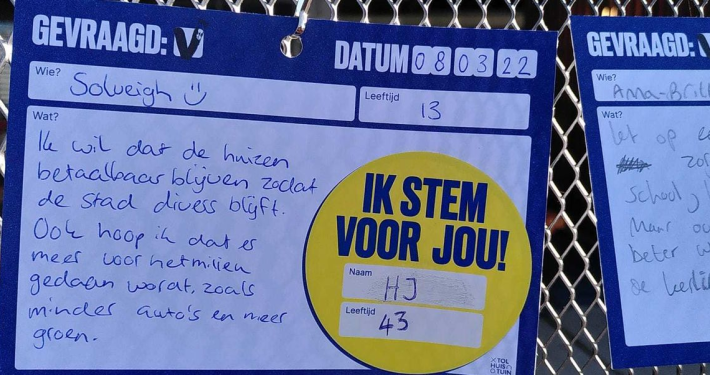 GEVRAAGD: V
DATUM 08 03 22
Wie?
Solweigh
Leeftijd
13
Wat?
Ik wil dat de huizen
betaalbaar blijven zodat
de stad divers blijft.
Ook hoop ik dat er
meer voor het milieu
gedaan wordt, zoals
minder auto's en meer
groen.
IK STEM
VOOR JOU!
Naam
HJ
Leeftijd
43
TOL
HUIS
TUIN
GEVRAAGD:
Wie?
Ama-Bril
Wat?
let op
zor
school
Maar
beter